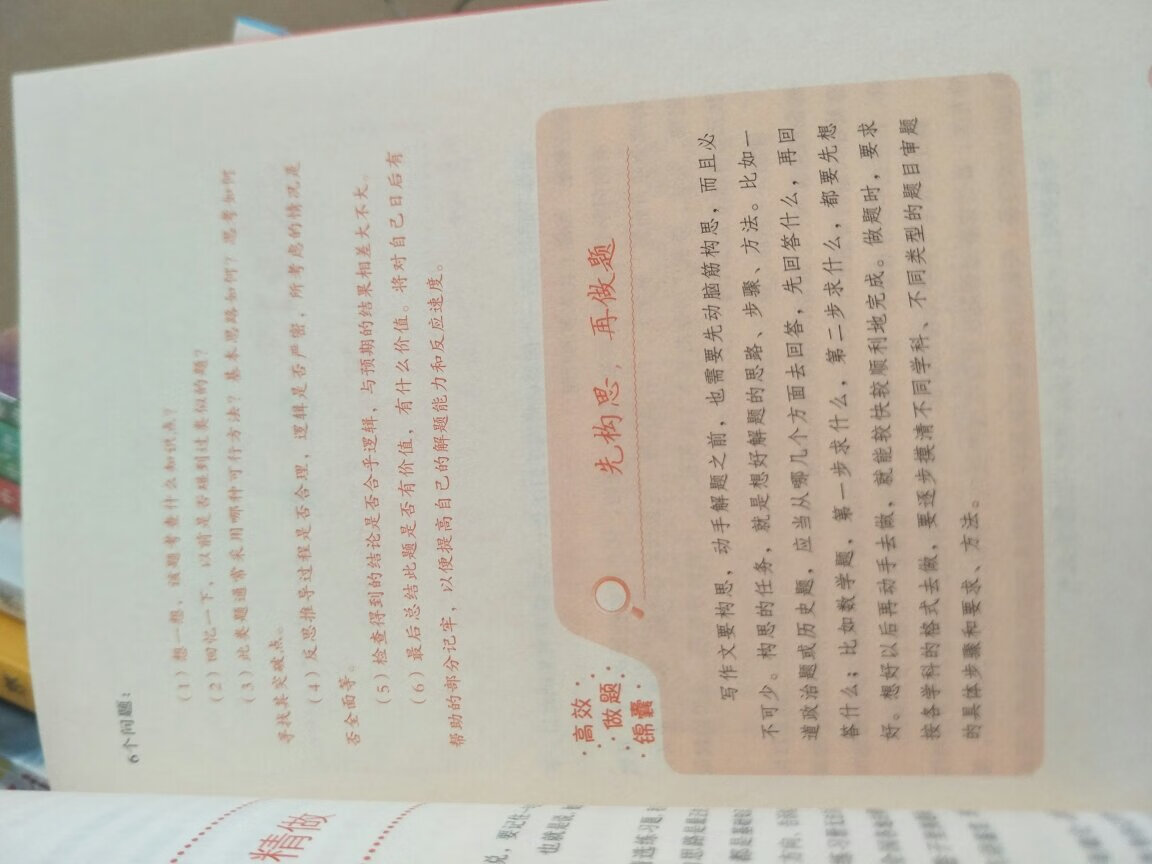 6个问题：
（1）想一想，该题考查什么知识点？
（2）回忆一下，以前是否碰到过类似的题？
（3）此类题通常采用哪种可行方法？基本思路如何？思考如何
寻找其突破点。
（4）反思推导过程是否合理，逻辑是否严密，所考虑的情况是
否全面等。
（5）检查得到的结论是否合乎逻辑，与预期的结果相差大不大。
（6）最后总结此题是否有价值，有什么价值。将对自己日后有
帮助的部分记牢，以便提高自己的解题能力和反应速度。
高效
做题
锦囊
先构思，再做题
写作文要构思，动手解题之前，也需要先动脑筋构思，而且必
不可少。构思的任务，就是想好解题的思路、步骤、方法。比如一
道政治题或历史题，应当从哪几个方面去回答，先回答什么，再回
答什么；比如数学题，第一步求什么，第二步求什么，都要先想
好。想好以后再动手去做，就能较快较顺利地完成。做题时，要求
按各学科的格式去做，要逐步摸清不同学科、不同类型的题目审题
的具体步骤和要求、方法。
精做
说，要记住
也就是说，
选练习题，
思路是最
都是基础